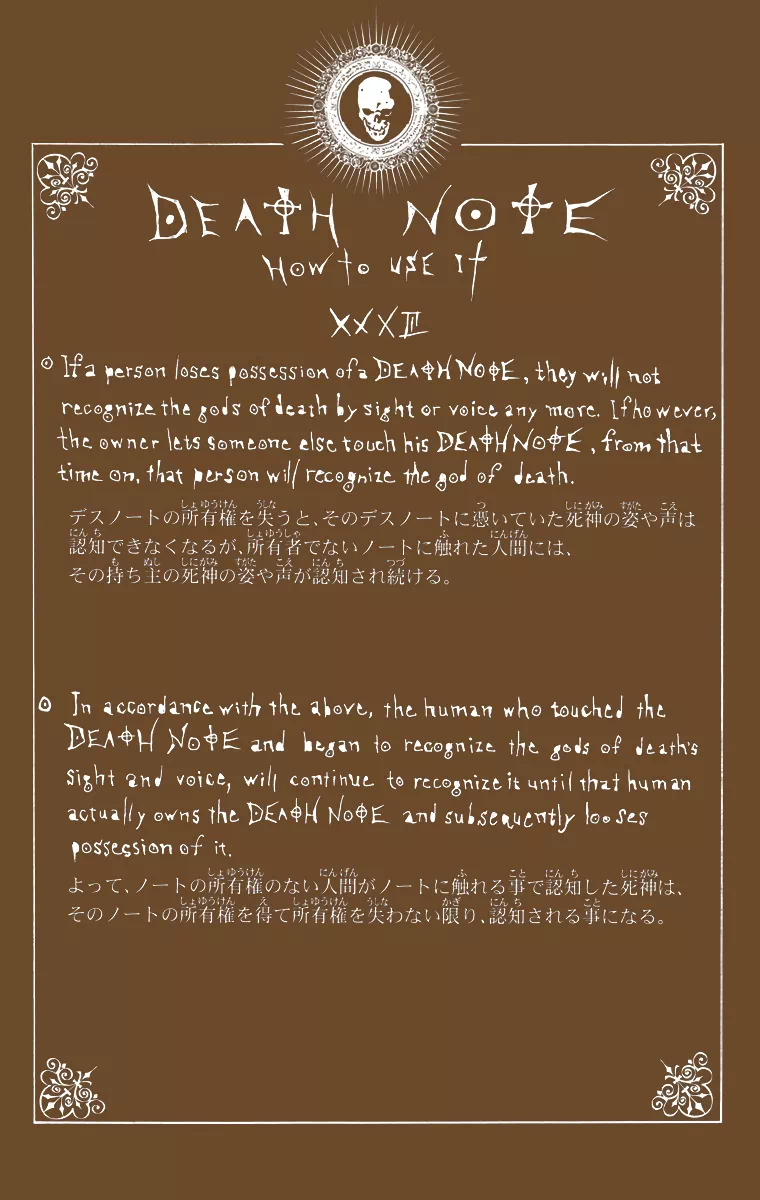 DEATH NOTE
How to use it
XXXIII
If a person loses possession of a DEATH NOTE, they will not
recognize the gods of death by sight or voice any more. If however,
the owner lets someone else touch his DEATH NOTE, from that
time on, that person will recognize the god of death.
デスノートの所有権を失うと、そのデスノートに憑いていた死神の姿や声は
認知できなくなるが、所有者でないノートに触れた人間には、
その持ち主の死神の姿や声が認知され続ける。
In accordance with the above, the human who touched the
DEATH NOTE and began to recognize the gods of death's
sight and voice, will continue to recognize it until that human
actually owns the DEATH NOTE and subsequently looses
possession of it.
よって、ノートの所有権のない人間がノートに触れる事で認知した死神は、
そのノートの所有権を得て所有権を失わない限り、認知される事になる。